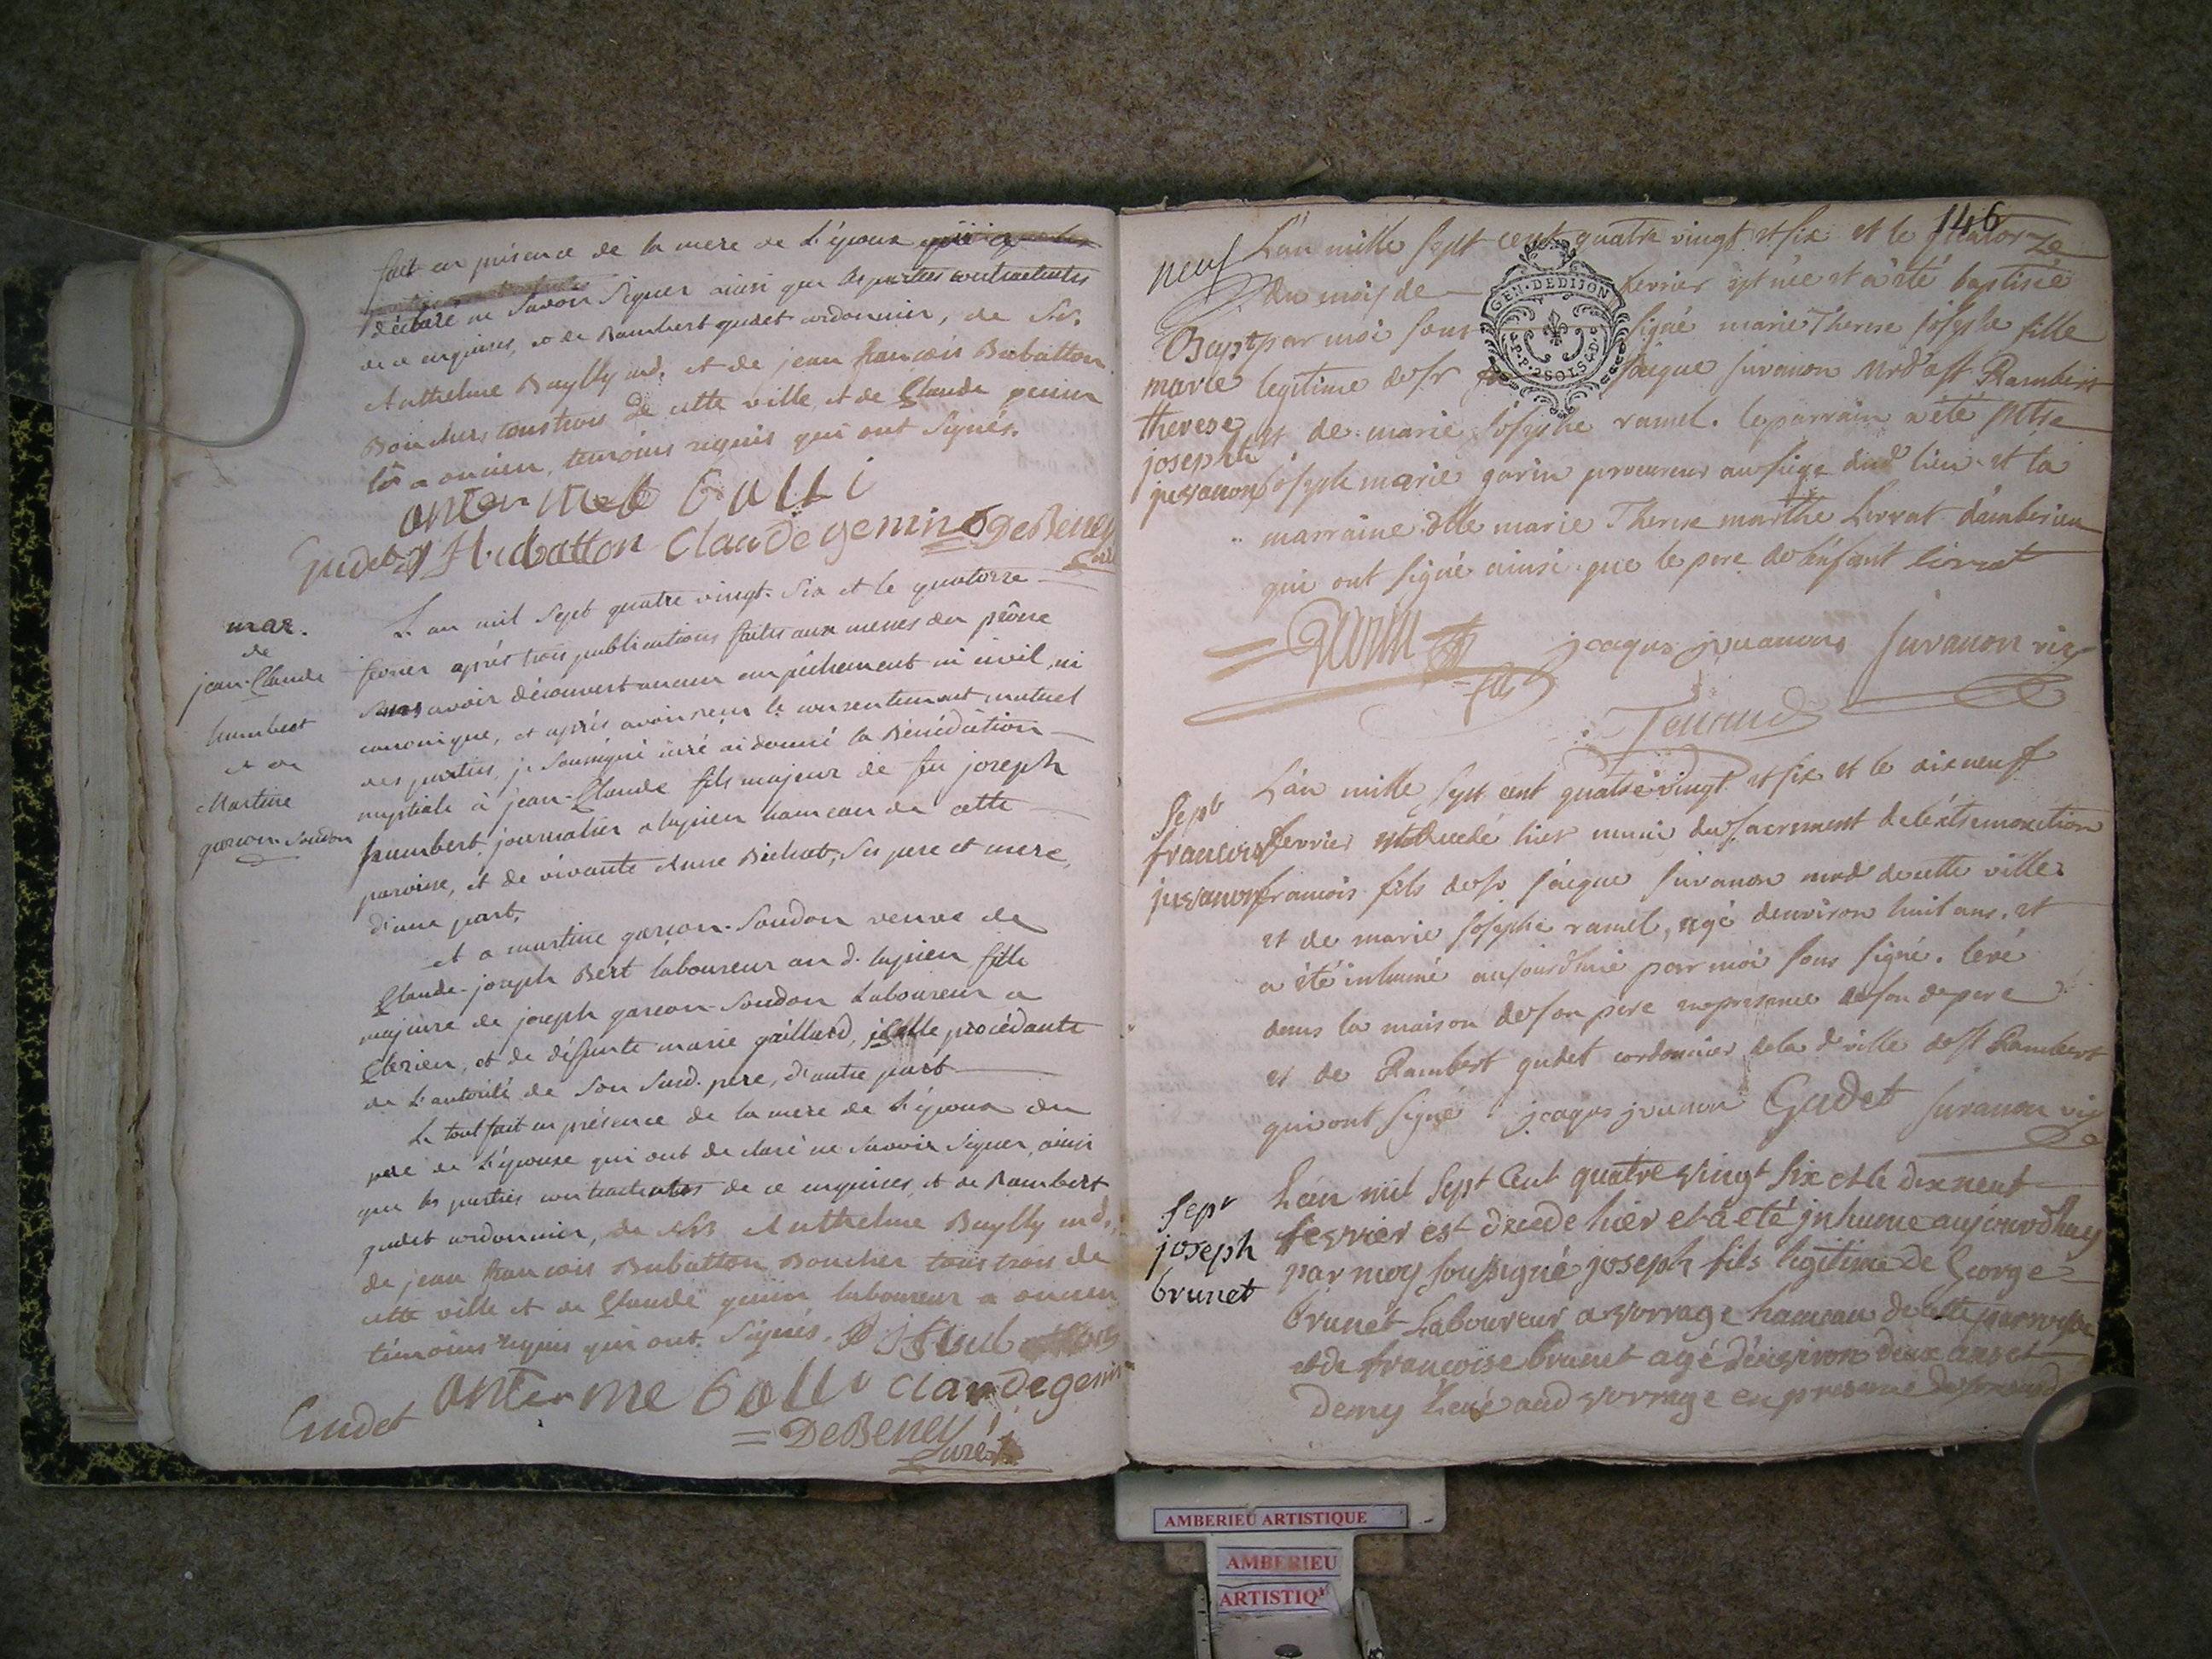 fait en présence de la mere de L'époux qui
déclaré ne Savoir Signer ainsi que les parties contractantes
de ce enquises, et de Rambert gudet cordonnier, de Sr.
Anthelme Baylly md. et de jean françois Dubatton
Boucher, tous trois de cette ville, et de Claude genin
lab. a oncieu, temoins requis qui ont Signés.
Gudet Hubatton Claude genin DeBeney
Curé
mar.
de
jean-Claude
humbert
et de
Martine
garcon-Soudon
L'an mil Sept quatre vingt-Six et le quatorze
fevrier aprés trois publications faites aux messes du prône
Sans avoir découvert aucun empêchement ni civil, ni
canonique, et aprés avoir reçu le consentement mutuel
des parties, je Soussigné curé ai donné la Bénédiction
nuptiale à jean-Claude fils majeur de feu joseph
humbert, journalier a lupieu hameau de cette
paroisse, et de vivante Anne Bichat, Ses pere et mere,
d'une part,
et a martine garcon-Soudon veuve de
Claude-joseph Bert laboureur au d. lupieu fille
majeure de joseph garcon-Soudon Laboureur a
Clezieu, et de défunte marie gaillard, icelle procédante
de L'autorité de Son Susd. pere, d'autre part
Le tout fait en présence de la mere de L'époux du
pere de L'épouse qui ont declaré ne Savoir Signer, ainsi
que les parties contractantes de ce enquises, et de Rambert
gudet cordonnier, de Sr Anthelme Baylly md.
de jean francois Dubatton Boucher tous trois de
cette ville et de Claude genin laboureur a oncieu
témoins requis qui ont Signés.
Claude genin
Gudet
= DeBeney
Curé
146
neuf
Bapt
marie
therese
josephe
juvanon
L'an mille Sept cent quatre vingt et six et le quatorze
du mois de fevrier est née et a été baptisée
GEN. DE DIJON
P.P. 2 SOLS 8 D.
par moi sous signé marie Therese josephe fille
legitime de sr jacque juvanon mrd a st Rambert
et de marie josephe ramel. le parrain a été
joseph marie garin procureur au siege dud lieu et la
marraine dlle marie Therese marthe Livrat d'amberieu
qui ont signé ainsi que le pere de l'enfant livrat
Garin jcaque juvanon juvanon vic
Tenand
Sept
francois
juvanon
L'an mille sept cent quatre vingt et six et le dix neuf
fevrier est decedé hier munie du sacrement de l'extremonction
francois fils de sr jacque juvanon mrd de cette ville
et de marie josephe ramel, agé d'environ huit ans, et
a été inhumé aujourdhui par moi sous signé. levé
dans la maison de son pere en presence de son d pere
et de Rambert gudet cordonnier de la d ville de st Rambert
qui ont signé jcaque juvanon Gudet juvanon vic
Sepr
joseph
brunet
L'an mil Sept Cent quatre vingt Six et le dix neuf
fevrier est decede hier et a eté inhume aujourdhuy
par moy soussigné joseph fils legitime de George
brunet Laboureur a vorrage hameau de cette parroisse
et de françoise brunet agé d'environ deux ans et
demy Levé aud vorrage en presence
AMBERIEU ARTISTIQUE
AMBERIEU
ARTISTIQ